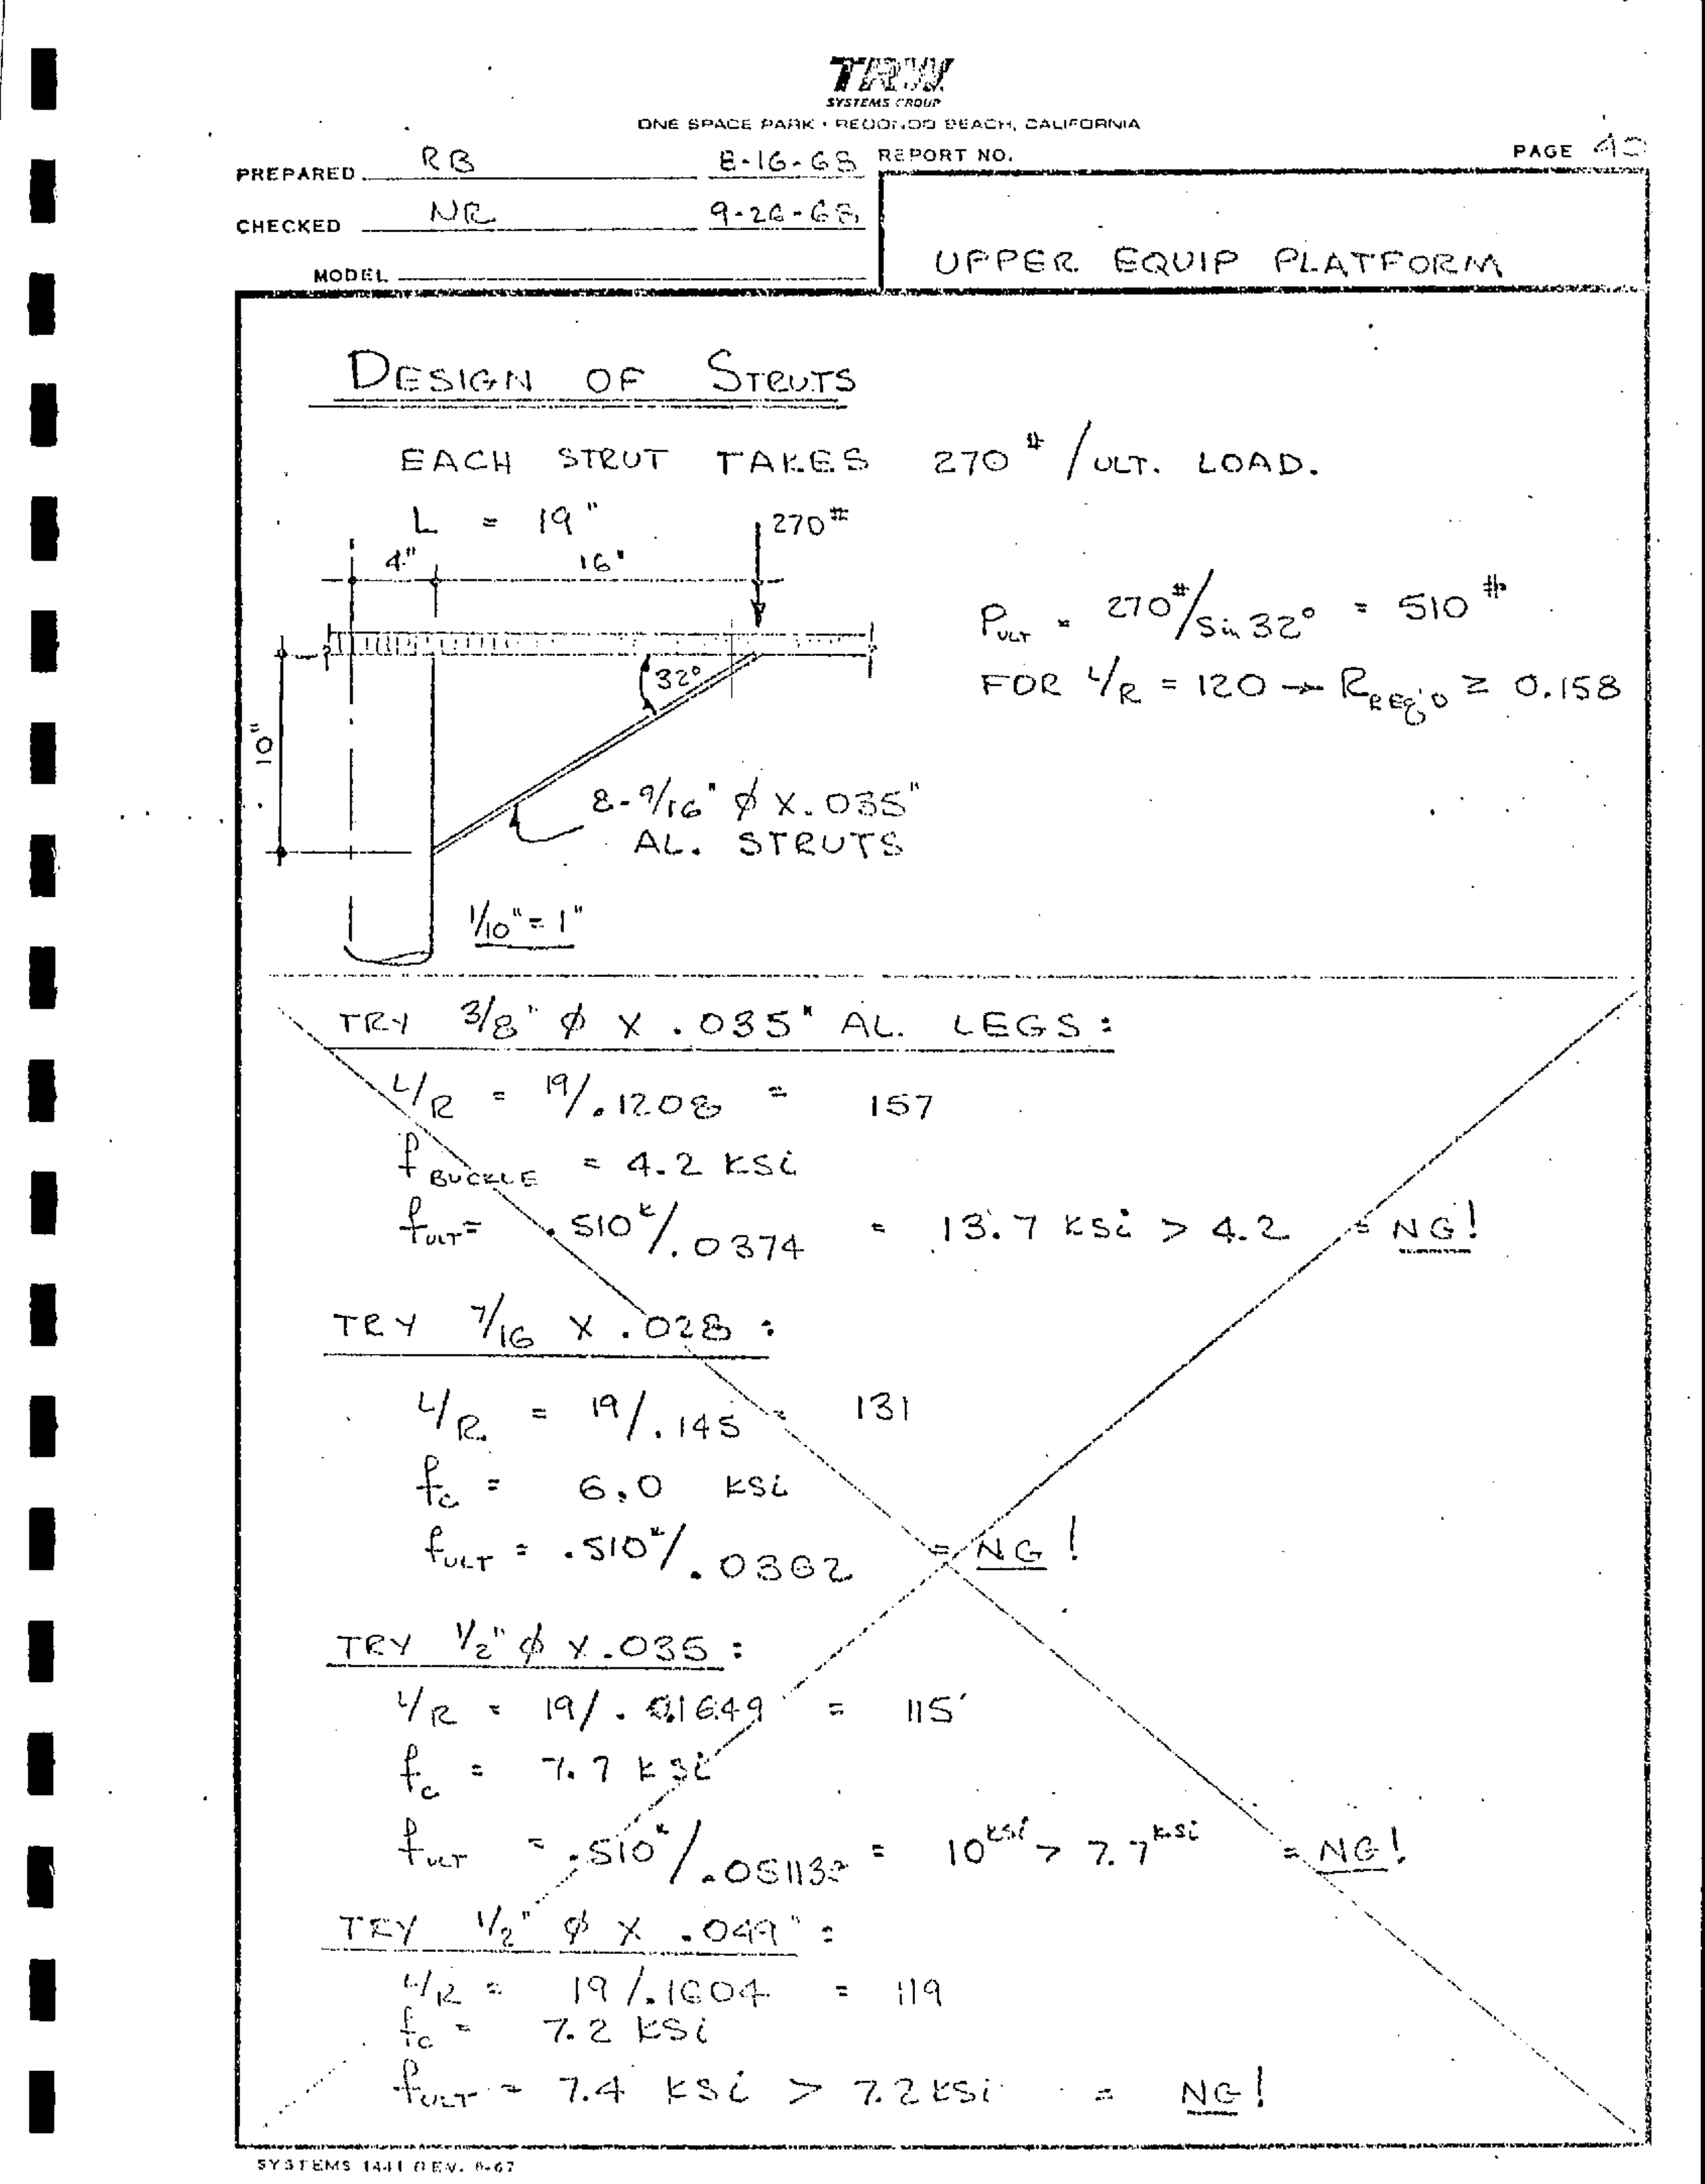 TRW
SYSTEMS GROUP
ONE SPACE PARK • REDONDO BEACH, CALIFORNIA
PREPARED RB 8-16-68 REPORT NO. PAGE 40
CHECKED NR 9-26-68
MODEL
UPPER EQUIP PLATFORM
DESIGN OF STRUTS
EACH STRUT TAKES 270# / ULT. LOAD.
L = 19"
270#
4" 16"
P_ULT = 270#/Sin 32° = 510#
32°
FOR L/R = 120 → R_REQ'D ≥ 0.158
10"
8-9/16" ϕ X .035"
AL. STRUTS
1/10" = 1"
TRY 3/8" ϕ X .035" AL. LEGS:
L/R = 19/.1208 = 157
f_BUCKLE = 4.2 KSi
f_ULT = .510k/.0374 = 13.7 KSi > 4.2 = NG!
TRY 7/16 X .028:
L/R = 19/.145 = 131
f_c = 6.0 KSi
f_ULT = .510k/.0362 = NG!
TRY 1/2" ϕ X .035:
L/R = 19/.1649 = 115
f_c = 7.7 KSi
f_ULT = .510k/.05113 = 10 KSi > 7.7 KSi = NG!
TRY 1/2" ϕ X .049":
L/R = 19/.1604 = 119
f_c = 7.2 KSi
f_ULT = 7.4 KSi > 7.2 KSi = NG!
SYSTEMS 1441 REV. 8-67